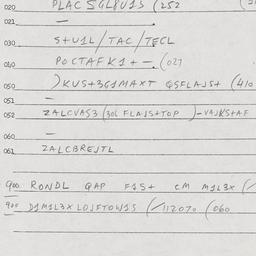 020 PLAC SGL8V1S (252
021 —
030 S+U1L/TAC/TECL
040 POCTAFK1+—. (027
050 )KUS+3G1MAXT QSFLAJS+ (410
051 —
052 ZALCVAS3 (306 FLAJS+TOP )-VAJKS+AF
060 —
061 ZALCBREJTL
900 RONDL QAP F1S+ CM M1L3X (/
900 D1M1L3X LOJFTOW1S (/112070 (060